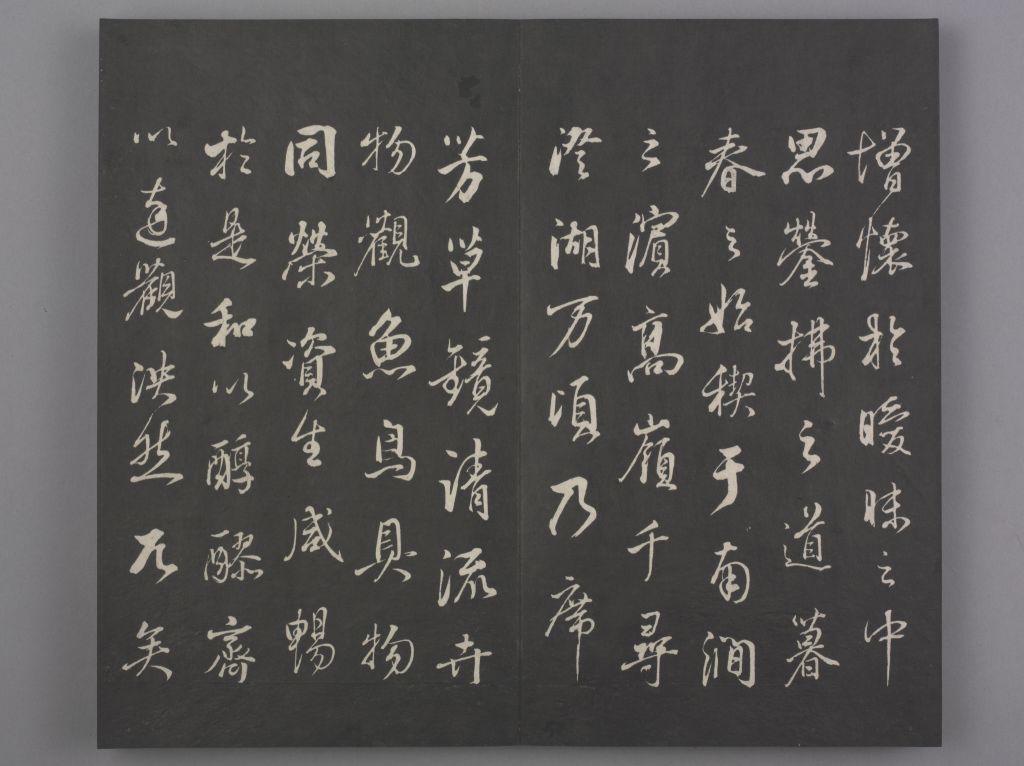 增懷於曖昧之中
思鎣拂之道暮
春之始禊于南澗
之濱高嶺千尋
澄湖万頃乃席
芳草鏡清流卉
物觀魚鳥具物
同榮資生咸暢
於是和以醇醪齊
以達觀泱然兀矣